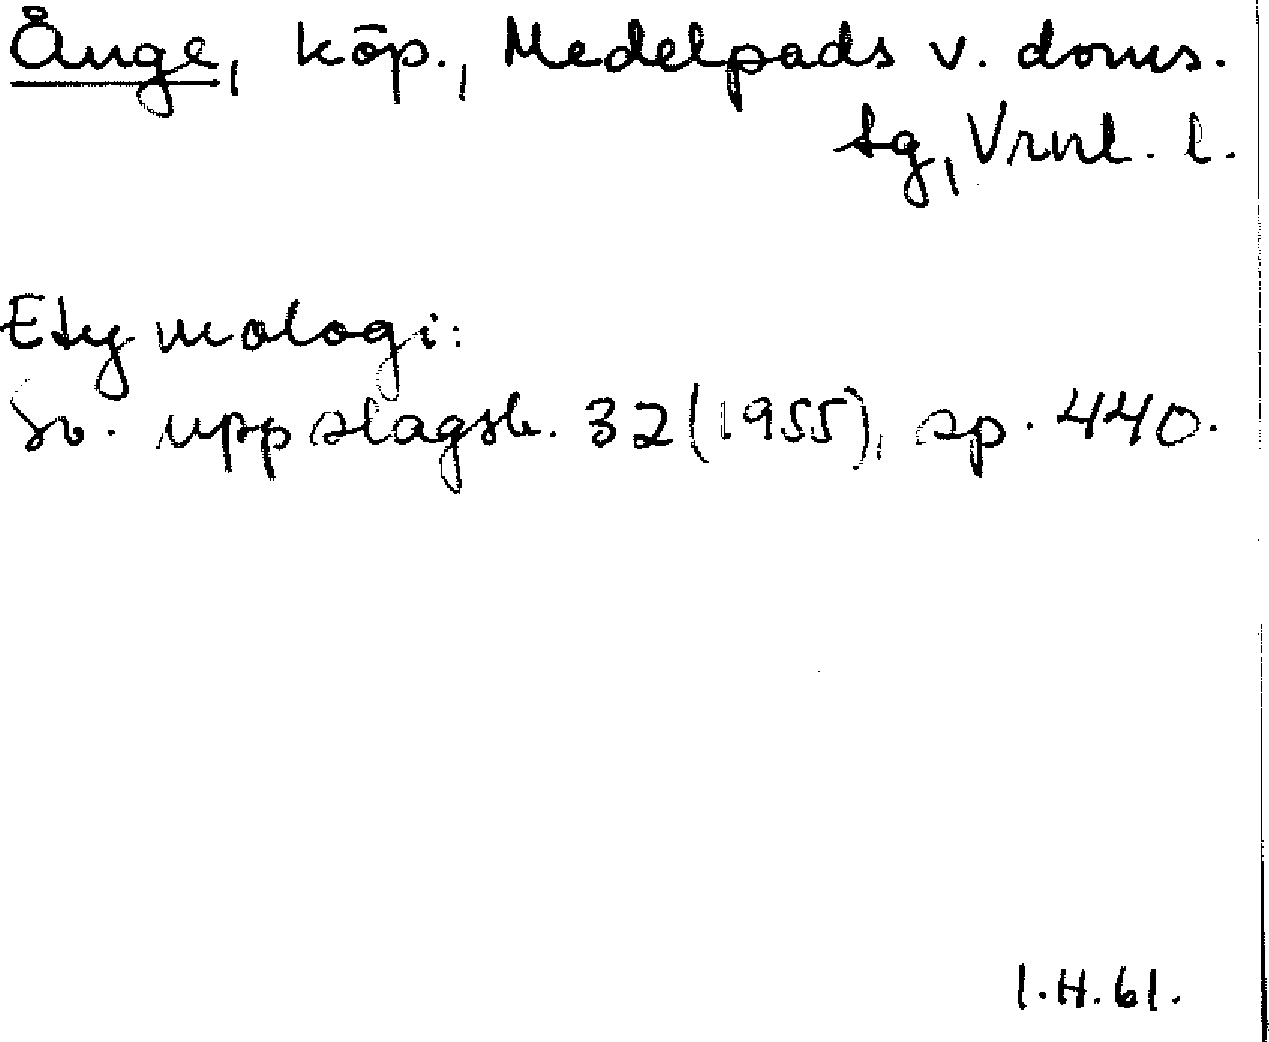 Ånge, köp., Medelpads v. doms.
sg, Vrnl. l.
Etymologi:
Sv. uppslagsb. 32 (1955), sp. 440.
I.H. 61.